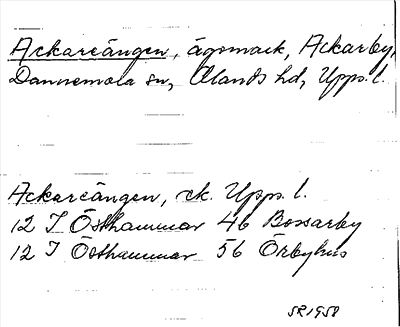 Ackareängen, ägomark, Ackarby,
Dannemora sn, Olands hd, Upps. l.
Ackareängen, ek. Upps. l.
12 I Östhammar 46 Bossarby
12 I Östhammar 56 Örbyhus
SR 1958